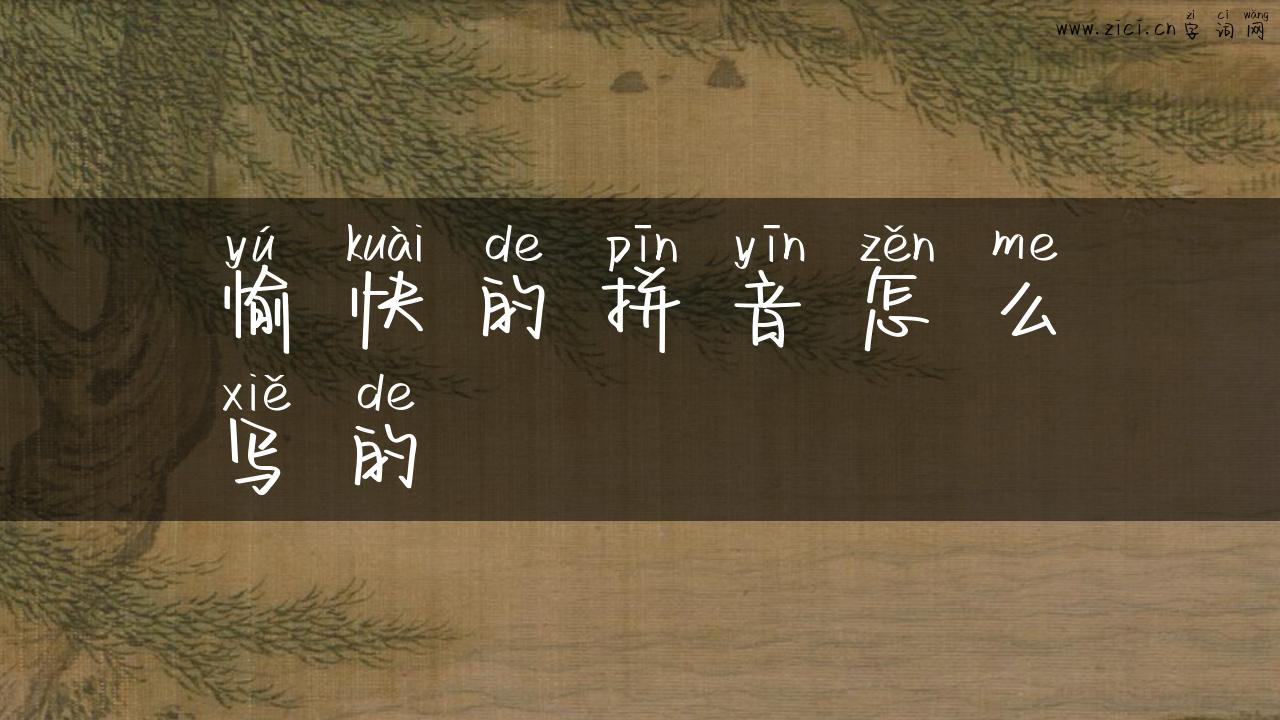 zì cí wǎng
www.zici.cn 字 词 网
yú kuài de pīn yīn zěn me
愉 快 的 拼 音 怎 么
xiě de
写 的